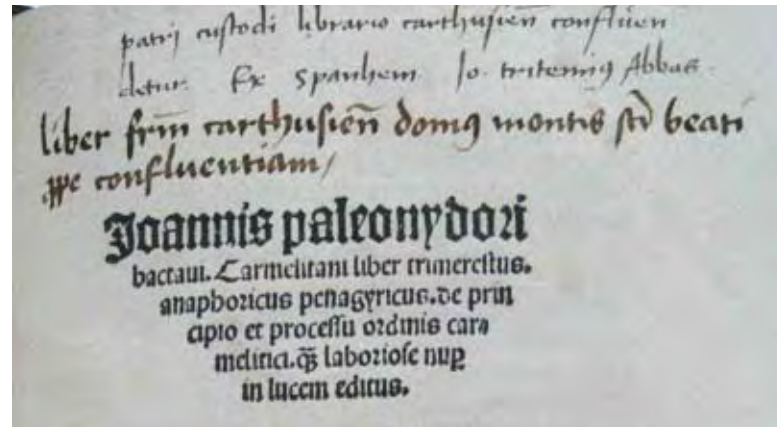 patrj custodi librario carthusieñ conflueñ
detur. Ex Spanhem Jo. tritemiꝰ Abbas.
liber frm̄ carthusieñ domꝰ montis scī beati
ꝓpe confluentiam/
Joannis paleonydori
bataui. Carmelitani liber trimerestus.
anaphoricus penagyricus. de prin
cipio et processu ordinis carə
melitici. q̄ꝫ laboriose nuꝑ
in lucem editus.